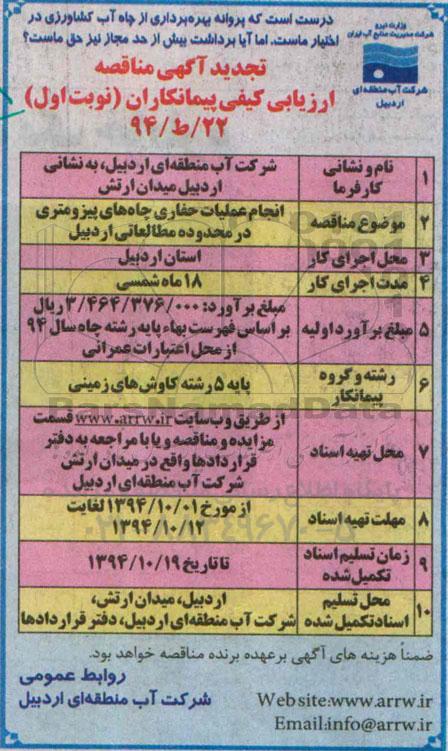 درست است که پروانه بهره‌برداری از چاه آب کشاورزی در
اختیار ماست. اما آیا برداشت بیش از حد مجاز نیز حق ماست؟
وزارت نیرو
شرکت مدیریت منابع آب ایران
شرکت آب منطقه‌ای
اردبیل
تجدید آگهی مناقصه
ارزیابی کیفی پیمانکاران (نوبت اول)
۹۴/ط/۲۲
۱ نام و نشانی کارفرما شرکت آب منطقه‌ای اردبیل، به نشانی
اردبیل میدان ارتش
۲ موضوع مناقصه انجام عملیات حفاری چاه‌های پیزومتری
در محدوده مطالعاتی اردبیل
۳ محل اجرای کار استان اردبیل
۴ مدت اجرای کار ۱۸ ماه شمسی
۵ مبلغ برآورد اولیه مبلغ برآورد: ۳/۴۶۴/۳۷۶/۰۰۰ ریال
بر اساس فهرست بهاء پایه رشته چاه سال ۹۴
از محل اعتبارات عمرانی
۶ رشته و گروه پیمانکار پایه ۵ رشته کاوش‌های زمینی
۷ محل تهیه اسناد از طریق وب سایت www.arrw.ir قسمت
مزایده و مناقصه و یا با مراجعه به دفتر
قراردادها واقع در میدان ارتش
شرکت آب منطقه‌ای اردبیل
۸ مهلت تهیه اسناد از مورخ ۱۳۹۴/۱۰/۰۱ لغایت
۱۳۹۴/۱۰/۱۲
۹ زمان تسلیم اسناد تکمیل شده تا تاریخ ۱۳۹۴/۱۰/۱۹
۱۰ محل تسلیم اسناد تکمیل شده اردبیل، میدان ارتش،
شرکت آب منطقه‌ای اردبیل، دفتر قراردادها
ضمناً هزینه های آگهی برعهده برنده مناقصه خواهد بود.
روابط عمومی
شرکت آب منطقه‌ای اردبیل
Website:www.arrw.ir
Email:info@arrw.ir